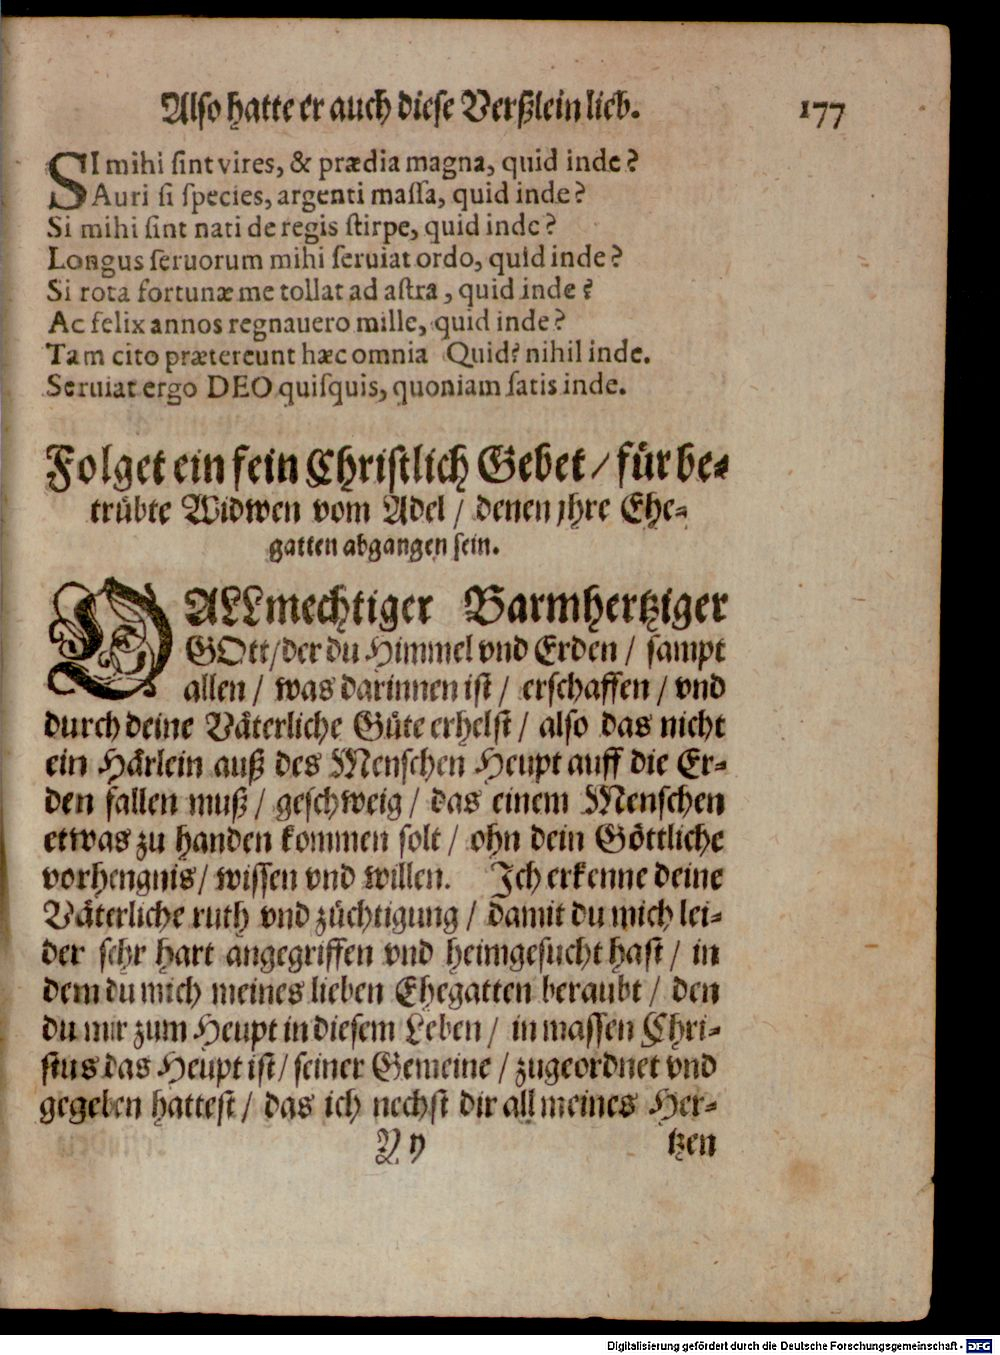 Also hatte er auch diese Verßlein lieb. 177
SI mihi sint vires, & prædia magna, quid inde?
Auri si species, argenti massa, quid inde?
Si mihi sint nati de regis stirpe, quid inde?
Longus seruorum mihi seruiat ordo, quid inde?
Si rota fortunæ me tollat ad astra, quid inde?
Ac felix annos regnauero mille, quid inde?
Tam cito prætereunt hæc omnia Quid? nihil inde.
Seruiat ergo DEO quisquis, quoniam satis inde.
Folget ein fein Christlich Gebet / für be-
trübte Widwen vom Adel / denen jhre Ehe-
gatten abgangen sein.
O ALLmechtiger Barmhertziger
GOtt / der du Himmel vnd Erden / sampt
allen / was darinnen ist / erschaffen / vnd
durch deine Väterliche Güte erhelst / also das nicht
ein Härlein auß des Menschen Heupt auff die Er-
den fallen muß / geschweig / das einem Menschen
etwas zu handen kommen solt / ohn dein Göttliche
vorhengnis / wissen vnd willen. Ich erkenne deine
Väterliche ruth vnd züchtigung / damit du mich lei-
der sehr hart angegriffen vnd heimgesucht hast / in
dem du mich meines lieben Ehegatten beraubt / den
du mir zum Heupt in diesem Leben / in massen Chri-
stus das Heupt ist / seiner Gemeine / zugeordnet vnd
gegeben hattest / das ich nechst dir all meines Her-
Y y tzen
Digitalisierung gefördert durch die Deutsche Forschungsgemeinschaft - DFG